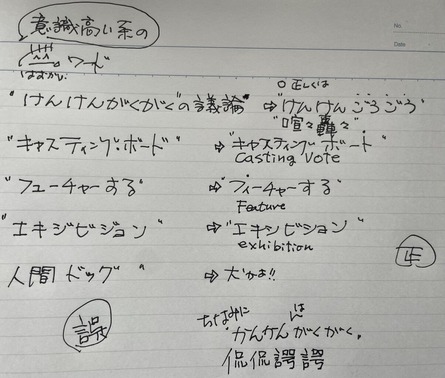 意識高い系の
ワード
はずかしい
No.
Date
○ 正しくは
"けんけんがくがく"の議論" ⇨ "けんけんごうごう"
"喧々轟々"
"キャスティング・ボード" ⇨ "キャスティングボート"
Casting Vote
"フューチャーする" ⇨ "フィーチャーする"
Feature
"エキジビジョン" ⇨ "エキシビション"
exhibition
人間ドッグ" ⇨ 犬かよ!!
正
誤
ちなみに
は
"かんかんがくがく。
侃侃諤諤